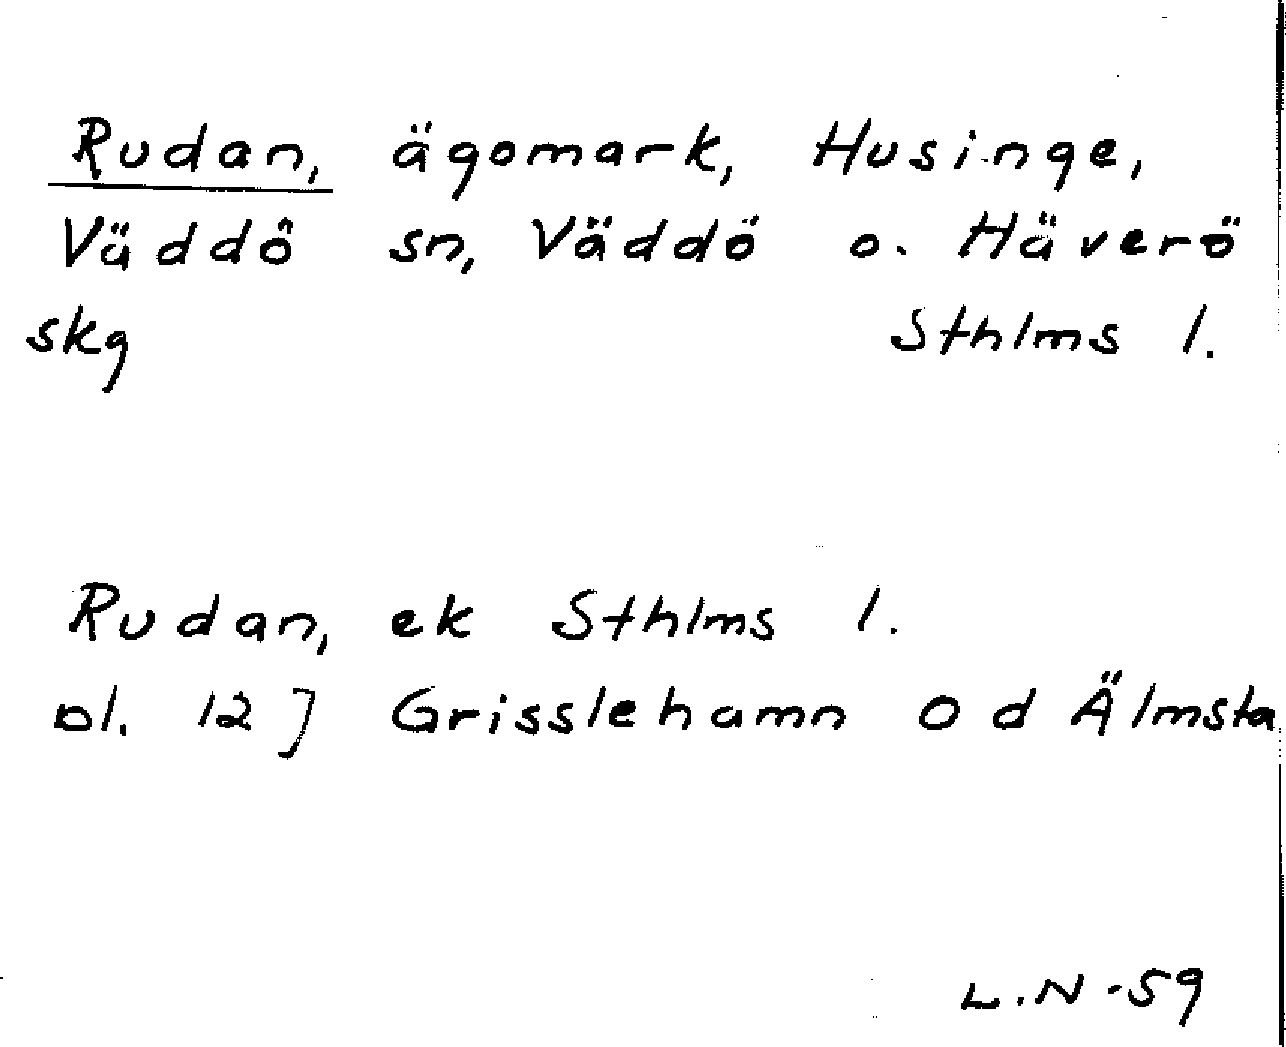 Rudan, ägomark, Husinge,
Väddö sn, Väddö o. Häverö
skg Sthlms l.
Rudan, ek Sthlms l.
bl. 12 J Grisslehamn O d Älmsta
L.N -59